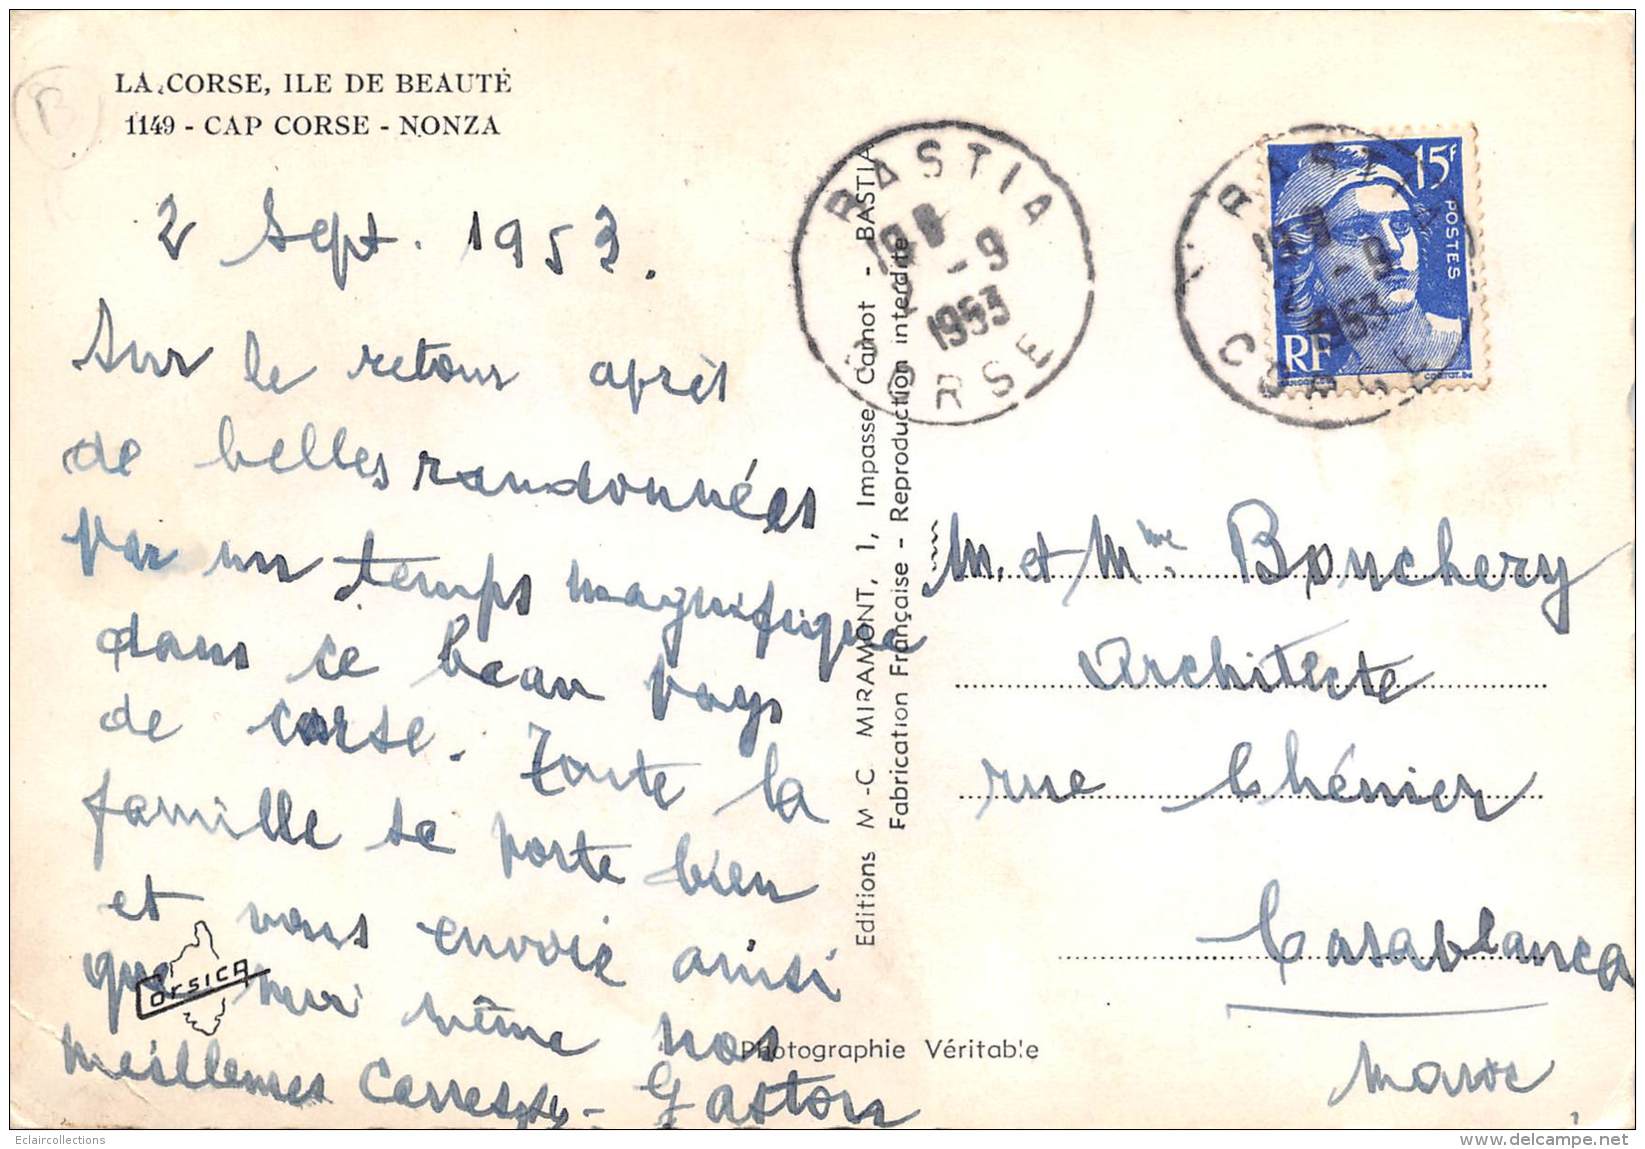 LA CORSE, ILE DE BEAUTÉ
1149 - CAP CORSE - NONZA
2 Sept. 1953.
Sur le retour après
de belles randonnées
par un temps magnifique
dans ce beau pays
de corse. Toute la
famille se porte bien
et vous envoie ainsi
que moi même nos
meilleures caresses - Gaston
Corsica
Editions M.-C. MIRAMONT, 1, Impasse Carnot - BASTIA
Fabrication Française - Reproduction interdite
Photographie Véritable
BASTIA
2 -9
1953
CORSE
BASTIA
-9
1953
CORSE
15F
POSTES
RF
GANDON
CORTOT
M. et Mme Bouchery
Architecte
rue Chénier
Casablanca
Maroc
B
Eclaircollections
www.delcampe.net